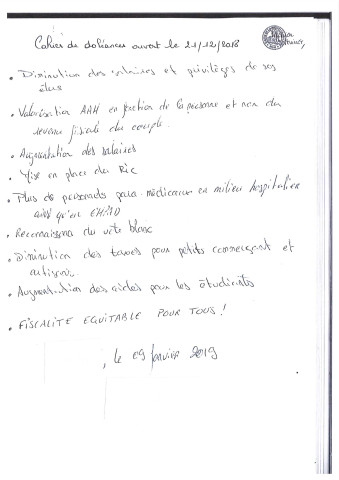 Cahier de doléances ouvert le 21/12/2018
• Diminution des salaires et privilèges de nos
élus
• Valorisation AAH en fonction de la personne et non du
revenu fiscal du couple.
• Augmentation des salaires
• Mise en place du Ric
• Plus de personnels para-médicaux en milieu hospitalier
ainsi qu'en EHPAD
• Reconnaissance du vote blanc
• Diminution des taxes pour petits commerçant et
artisans
• Augmentation des aides pour les étudiants
• FISCALITE EQUITABLE POUR TOUS !
, le 09 Janvier 2019